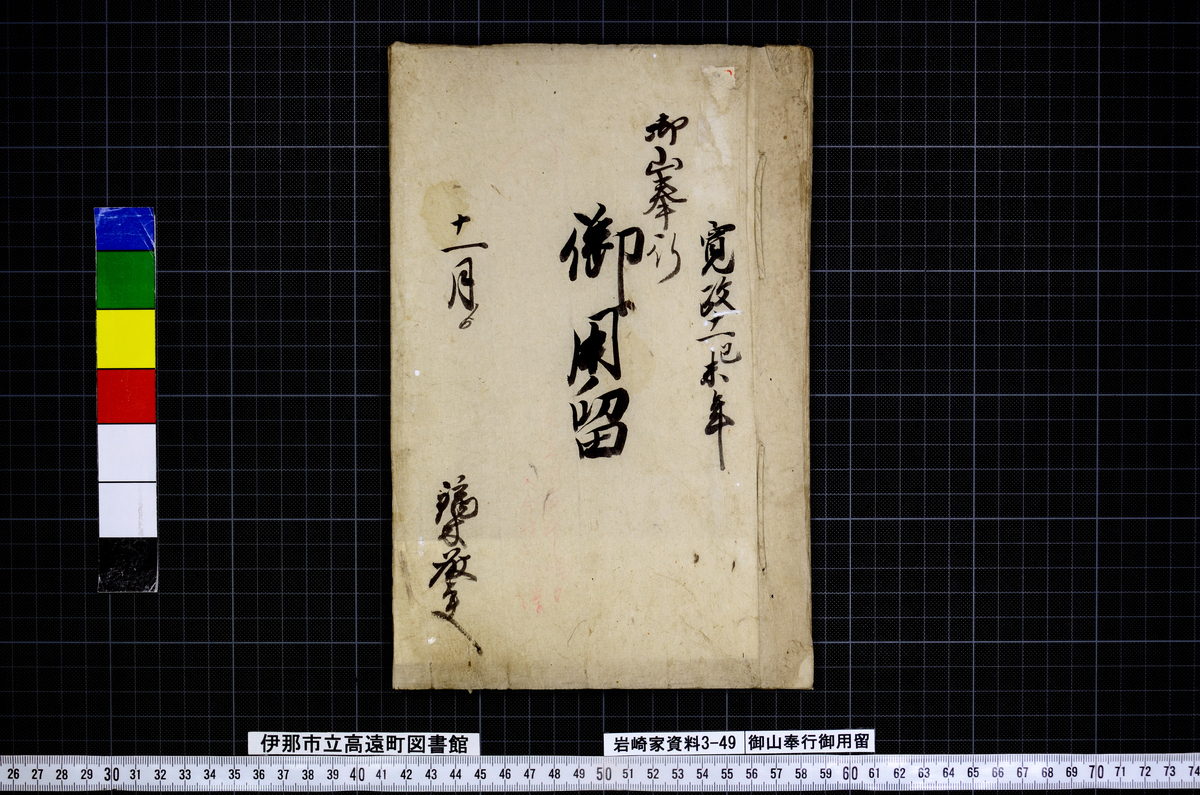 寛政十一己未年
御山奉行
御用留
十一月ゟ
伊那市立高遠町図書館
岩崎家資料3-49 御山奉行御用留
26 27 28 29 30 31 32 33 34 35 36 37 38 39 40 41 42 43 44 45 46 47 48 49 50 51 52 53 54 55 56 57 58 59 60 61 62 63 64 65 66 67 68 69 70 71 72 73 74